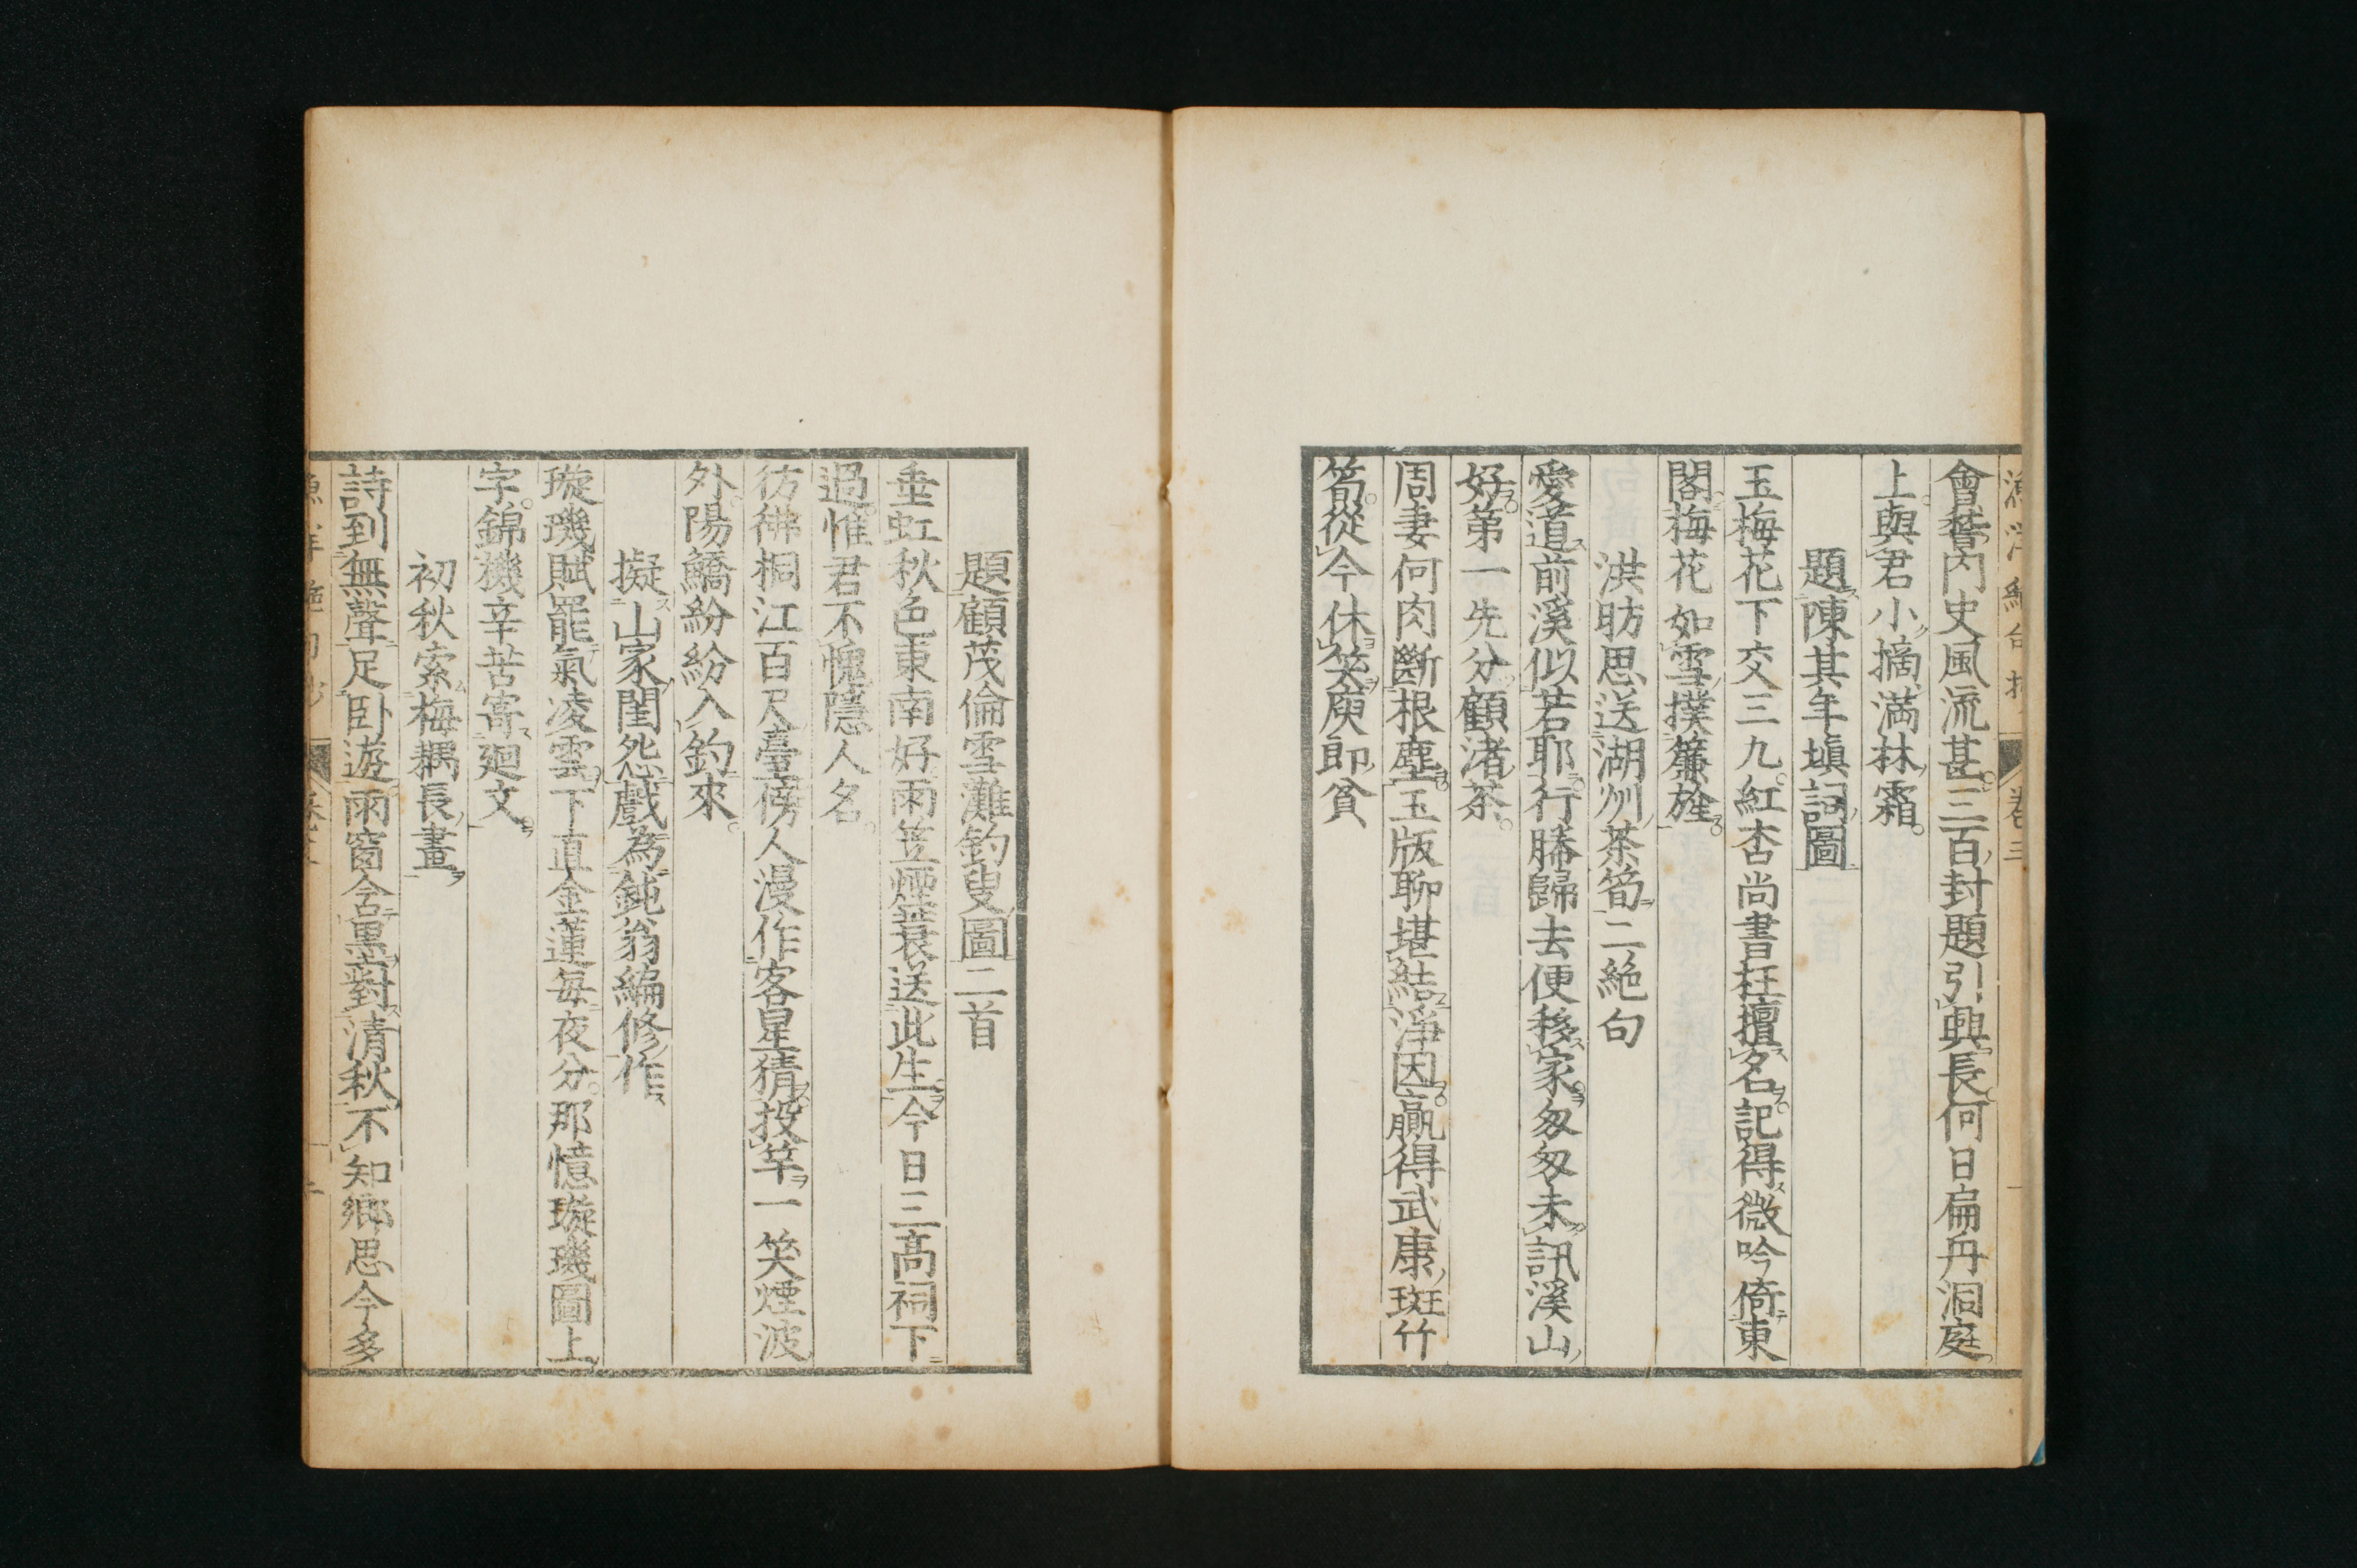 會嵆内史風流甚三百封題引興長何日扁舟洞庭
上與君小摘滿林霜
題陳其年塡詞圖
玉梅花下交三九紅杏尚書枉擅名記得微吟倚東
閣梅花如雪撲簾旌
洪昉思送湖州茶筍二絶句
愛道前溪似若耶行勝歸去便移家匆匆未訊溪山
好第一先分顧渚茶
周妻何肉斷根塵玉版聊堪結淨因贏得武康斑竹
筍從今休笑庾郎貧
題顧茂倫雪灘釣叟圖二首
垂虹秋色東南好雨笠煙蓑送此生今日三高祠下
過惟君不愧隱人名
彷彿桐江百尺臺傍人漫作客星猜投竿一笑煙波
外陽鱎紛紛入釣來
擬山家閨怨戲為鈍翁編修作
璇璣賦罷氣凌雲下直金蓮每夜分那憶璇璣圖上
字錦機辛苦寄廻文
初秋索梅耦長畫
詩到無聲足卧遊雨窗含墨對清秋不知鄉思今多